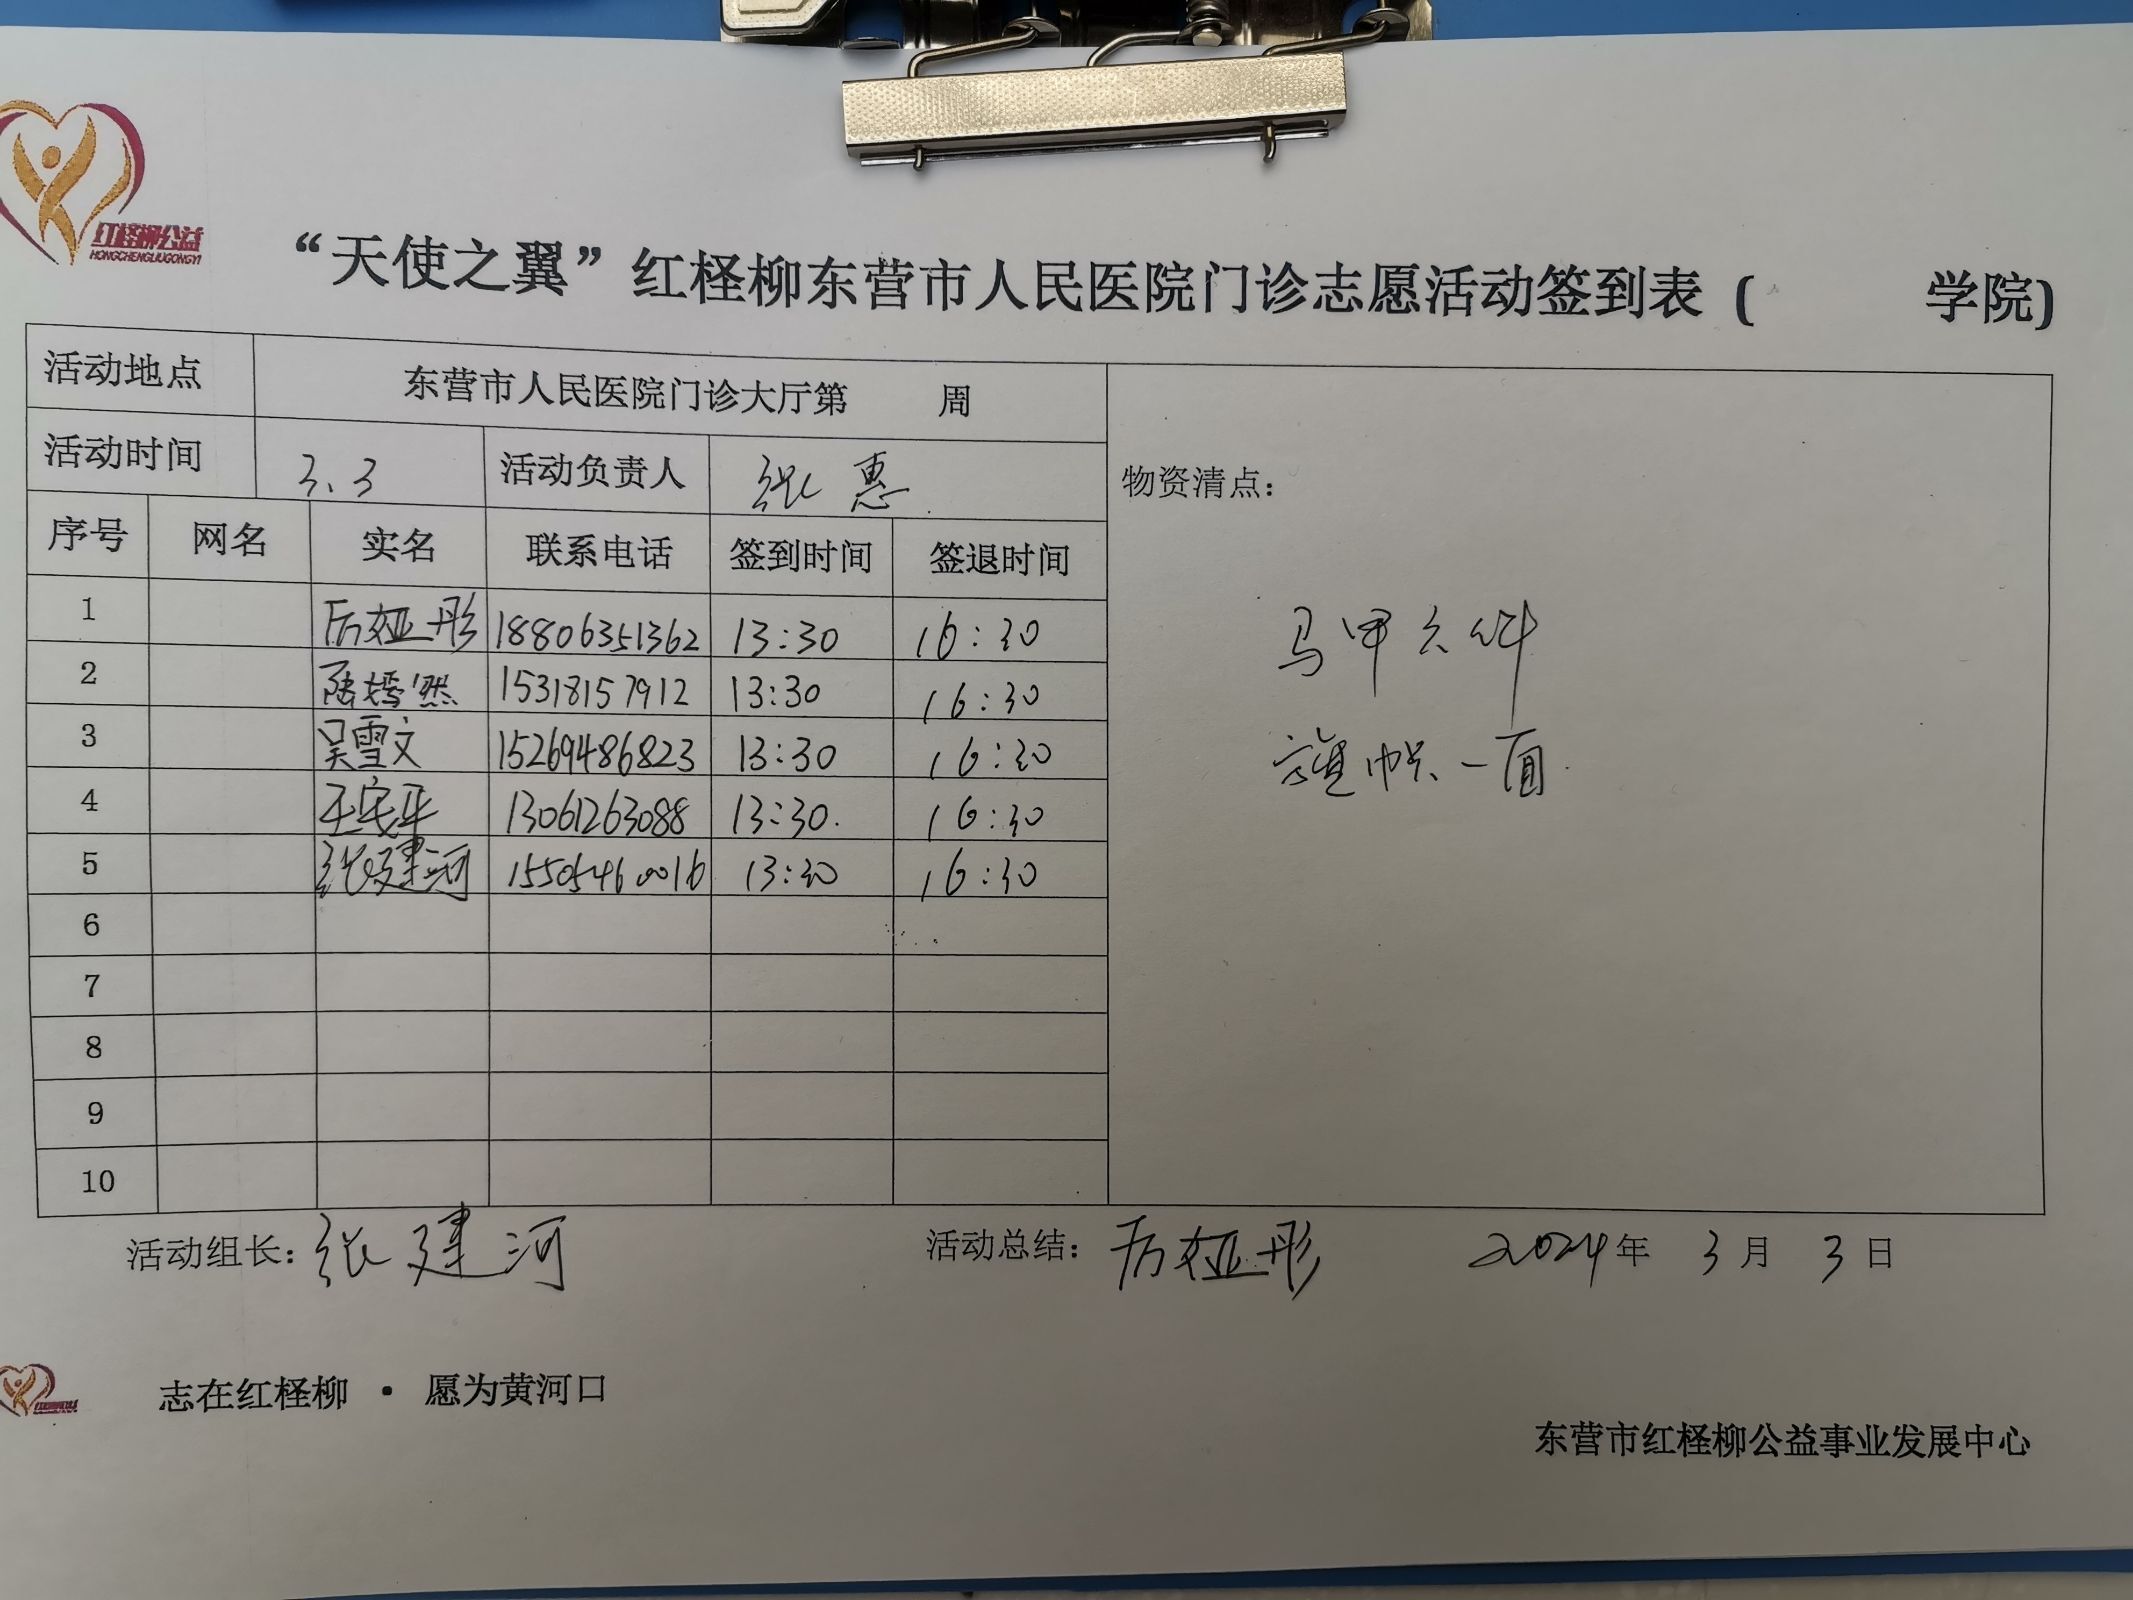 红柽柳公益
HONGCHENGLIUGONGYI
“天使之翼”红柽柳东营市人民医院门诊志愿活动签到表 (        学院)
活动地点 东营市人民医院门诊大厅第    周
活动时间 3.3 活动负责人 张惠
物资清点：
序号 网名 实名 联系电话 签到时间 签退时间
1 娅彤 18806351362 13:30 16:30
2 陆嫣然 15318157912 13:30 16:30
3 吴雪文 15269486823 13:30 16:30
4 王安平 13061263088 13:30. 16:30
5 张建河 15505460016 13:30 16:30
6
7
8
9
10
马甲六件
旗帜一面.
活动组长：张建河 活动总结：娅彤 2024年 3月 3日
志在红柽柳 · 愿为黄河口
东营市红柽柳公益事业发展中心